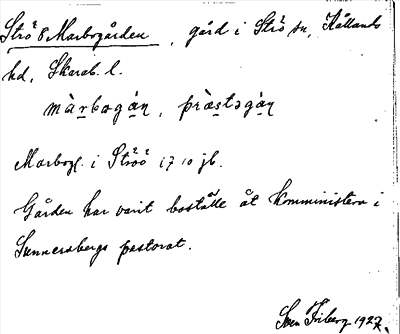 Strö 8 Marbogården, gård i Strö sn, Kållands
hd, Skarab. l.
màrbəgán, præ̀stəgán
Marbog. i Ströö 1710 jb.
Gården har varit boställe åt komministern i
Sunnersbergs pastorat.
Sven Friberg 1927.